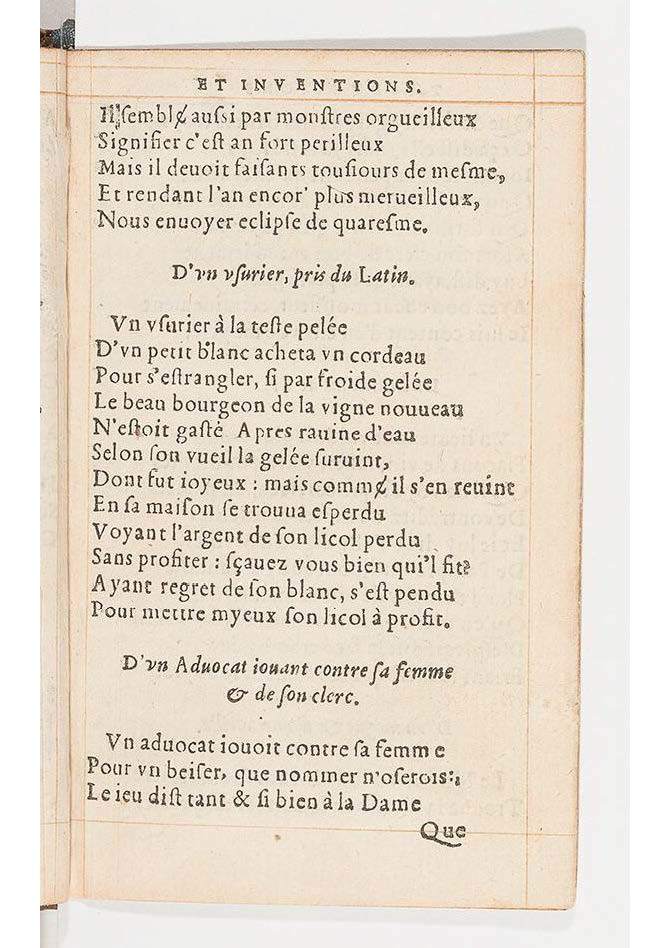 ET INVENTIONS.
Il ſemblɇ auſsi par monſtres orgueilleux
Signifier c'eſt an fort perilleux
Mais il deuoit faiſants touſiours de meſme,
Et rendant l'an encor' plus merueilleux,
Nous enuoyer eclipſe de quareſme.
D'vn vſurier, pris du Latin.
Vn vſurier à la teſte pelée
D'vn petit blanc acheta vn cordeau
Pour s'eſtrangler, ſi par froide gelée
Le beau bourgeon de la vigne nouueau
N'eſtoit gaſté Apres rauine d'eau
Selon ſon vueil la gelée ſuruint,
Dont fut ioyeux : mais commɇ il s'en reuint
En ſa maiſon ſe trouua eſperdu
Voyant l'argent de ſon licol perdu
Sans profiter : sçauez vous bien qui'l fit?
Ayant regret de ſon blanc, s'eſt pendu
Pour mettre myeux ſon licol à profit.
D'vn Aduocat iouant contre ſa femme
& de ſon clerc.
Vn aduocat iouoit contre ſa femme
Pour vn beiſer, que nommer n'oſerois:,
Le ieu diſt tant & ſi bien à la Dame
Que